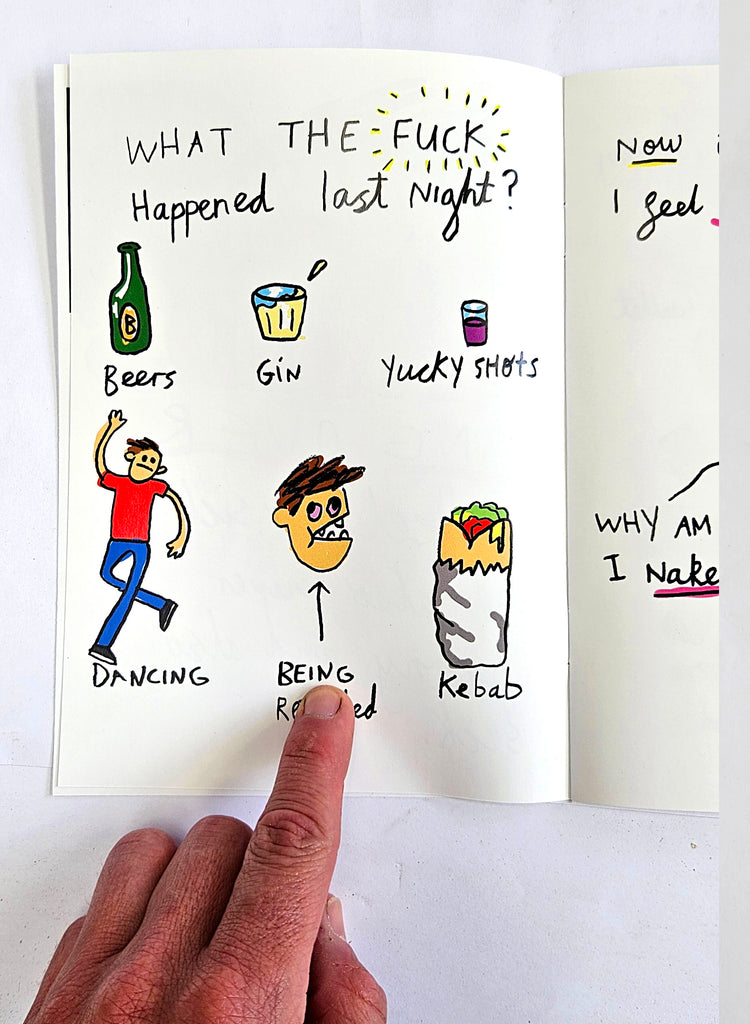 WHAT THE FUCK
Happened last Night?
B
Beers
GiN
YUCKY SHOts
DANCING
BEING
Kebab
Now
I feel
WHY AM
I